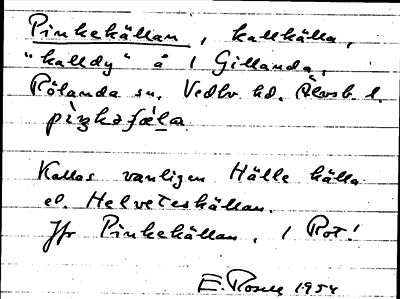 Pinkekällan, kallkälla,
"kalldy" å 1 Gillanda,
Rölanda sn. Vedbo hd. Älvsb. l.
Kallas vanligen Hälle källa
el. Helveteskällan.
Jfr Pinkekällan, 1 Rot!
E. Rosell 1954